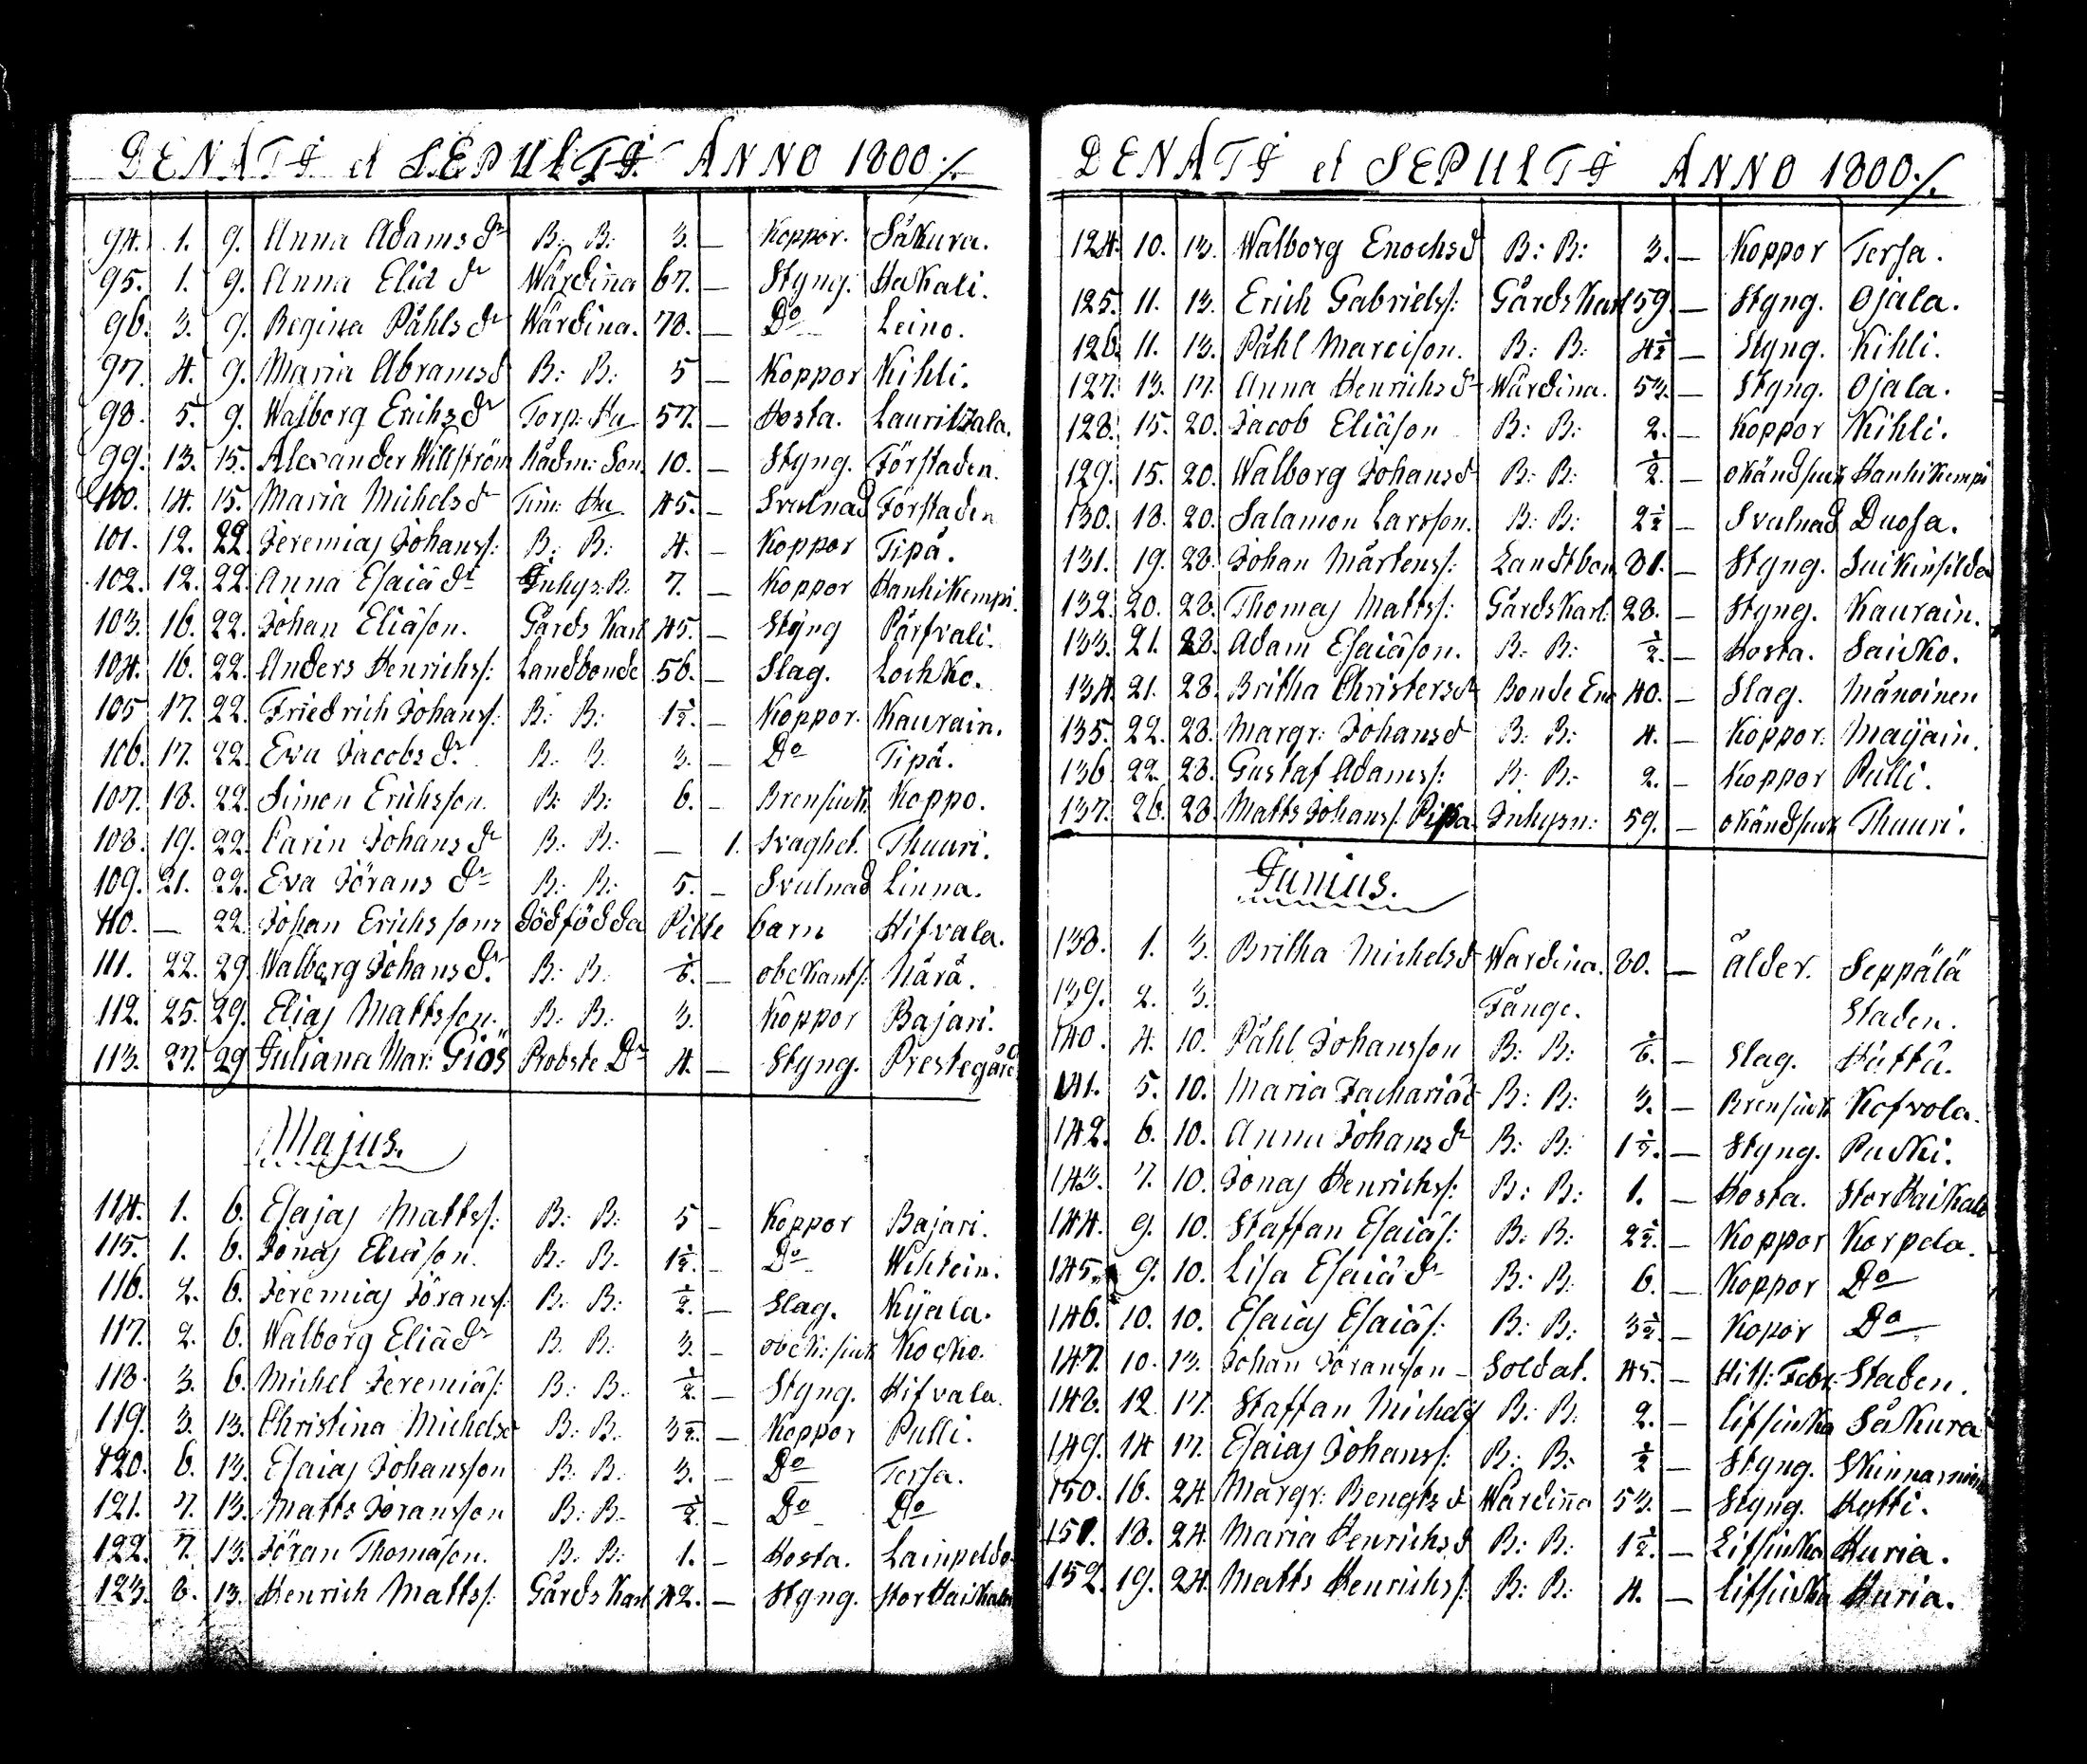 DENATI et SEPULTI ANNO 1800./.
94. 1. 9. Anna Adams dr B: B: 3. — Koppor. Säkura.
95. 1. 9. Anna Eliæ dr Wärdinna 67. — Styng. Hakali.
96. 3. 9. Regina Påhls dr Wärdina. 78. — Do Leino.
97. 4. 9. Maria Abramsd B: B: 5 — Koppor Kihli.
98. 5. 9. Walborg Erichs dr Torp: Hu 57. — Hosta. Lauritzala.
99. 13. 15. Alexander Willström Rådm: Son 10. — Styng. Förstaden.
100. 14. 15. Maria Michels dr Tim: Hu 45. — Svulnad Förstaden
101. 12. 22. Jeremias Johanss: B: B: 4. — Koppor Tipä.
102. 12. 22. Anna Esaiæ dr Inhys: B. 7. — Koppor Hanhikempi.
103. 16. 22. Johan Eliæson. Gårds Karl 45. — Styng Pärsvali.
104. 16. 22. Anders Henrichs: Landbonde 56. — Slag. Lochko.
105 17. 22. Friedrich Johanss: B: B: 1½. — Koppor. Kaurain.
106. 17. 22. Eva Jacobs dr. B: B. 3. — Do Tipä.
107. 18. 22. Simon Erichsson. B: B: 6. — Brensiuk. Koppo.
108. 19. 22. Carin Johans dr B: B: — 1. Svaghet. Thuuri.
109. 21. 22. Eva Jörans dr B: B: 5. — Svulnad Linna.
110. — 22. Johan Erichssons dödfödda Pilte barn Hifvala.
111. 22. 29. Walborg Johans dr. B: B: — obekants: Närä.
112. 25. 29. Elias Mattsson. B: B: 3. Koppor Bajari.
113. 27. 29 Juliana Mar: Giös Probste Dr 4. — Styng. Prestegård
Majus.
114. 1. 6. Esajas Matts: B: B: 5 — Koppor Bajari.
115. 1. 6. Jonas Eliæson. B: B. 1½. — Do
116. 2. 6. Jeremias Jöranss: B: B: ½. — Slag. Kijala.
117. 2. 6. Walborg Eliæ dr B. B: 3. — obek: siuk Kocko.
118. 3. 6. Michel Jeremiæs: B: B. ½. — Styng. Hifvala.
119. 3. 13. Christina Michelsd B: B. 3½. — Koppor Pulli.
120. 6. 13. Esaias Johansson B: B. 3. — Do Tersa.
121. 7. 13. Matts Jöransson B: B. ½. — Do Do
122. 7. 13. Jöran Thomæson. B: B: 1. — Hosta. Lainpeldo.
123. 8. 13. Henrich Matts: Gårds Karl 42. — Styng. StorHaikala
DENATI et SEPULTI ANNO 1800./.
124. 10. 13. Walborg Enochsd B: B: 3. — Koppor Tersa.
125. 11. 13. Erich Gabriels: Gårds Karl 59. — Styng. Ojala.
126. 11. 13. Påhl Marcison. B: B: 4½ — Styng. Kihli.
127. 13. 17. Anna Henrichs dr Wärdina. 53. — Styng. Ojala.
128. 15. 20. Jacob Eliæson B: B: 2. — Koppor Kihli.
129. 15. 20. Walborg Johansd B: B: ½. — okändsiuk Hanhikempi
130. 18. 20. Salamon Larsson. B: B: 2½ — Svulnad Duosa.
131. 19. 28. Johan Mårtens: Landtbon 81. — Styng.
132. 20. 28. Thomas Matts: Gårds Karl: 28. — Styng. Kaurain.
133. 21. 28. Adam Esaiæson. B: B: ½. — Hosta. Saicko.
134. 21. 28. Britha Christersd Bonde Enk 40. — Slag. Mänoinen
135. 22. 28. Margr: Johansd B: B: 4. — Koppor. Maijain.
136 22. 28. Gustaf Adams: B: B: 2. — Koppor Pulli.
137. 26. 28. Matts Johans: Inhysn: 59. — okändsiuk Thuuri.
Junius.
138. 1. 3. Britha Michelsd Wärdina. 80. — Ålder. Seppälä
139. 2. 3. Fånge. Staden.
140. 4. 10. Påhl Johansson B: B: — Slag. Hättä.
141. 5. 10. Maria Zachariæd B: B: 3. — Brensiuk Kofvola.
142. 6. 10. Anna Johans dr B: B: 1½. — Styng. Pucki.
143. 7. 10. Jonas Henrichs: B: B: 1. — Hosta. StorHaikala
144. 9. 10. Staffan Esaiæs: B: B: 2½. — Koppor Korpela.
145. 9. 10. Lisa Esaiæ dr B: B: 6. — Koppor Do
146. 10. 10. Esaias Esaiæs: B: B: 3½ — Kopor Do
147. 10. 13. Johan Jöransson — Soldat. 45. — Hitt: Febr: Staden.
148. 12 17. Staffan Michels B: B. 2. — Säkura
149. 14 17. Esaias Johanss: B: B: ½ — Styng.
150. 16. 24. Margr: Bengts d Wärdinna 53. — Styng.
151. 18. 24. Maria Henrichsd B: B: 1½. — Huria.
152. 19. 24. Matts Henrichs: B: B: 4. — Huria.